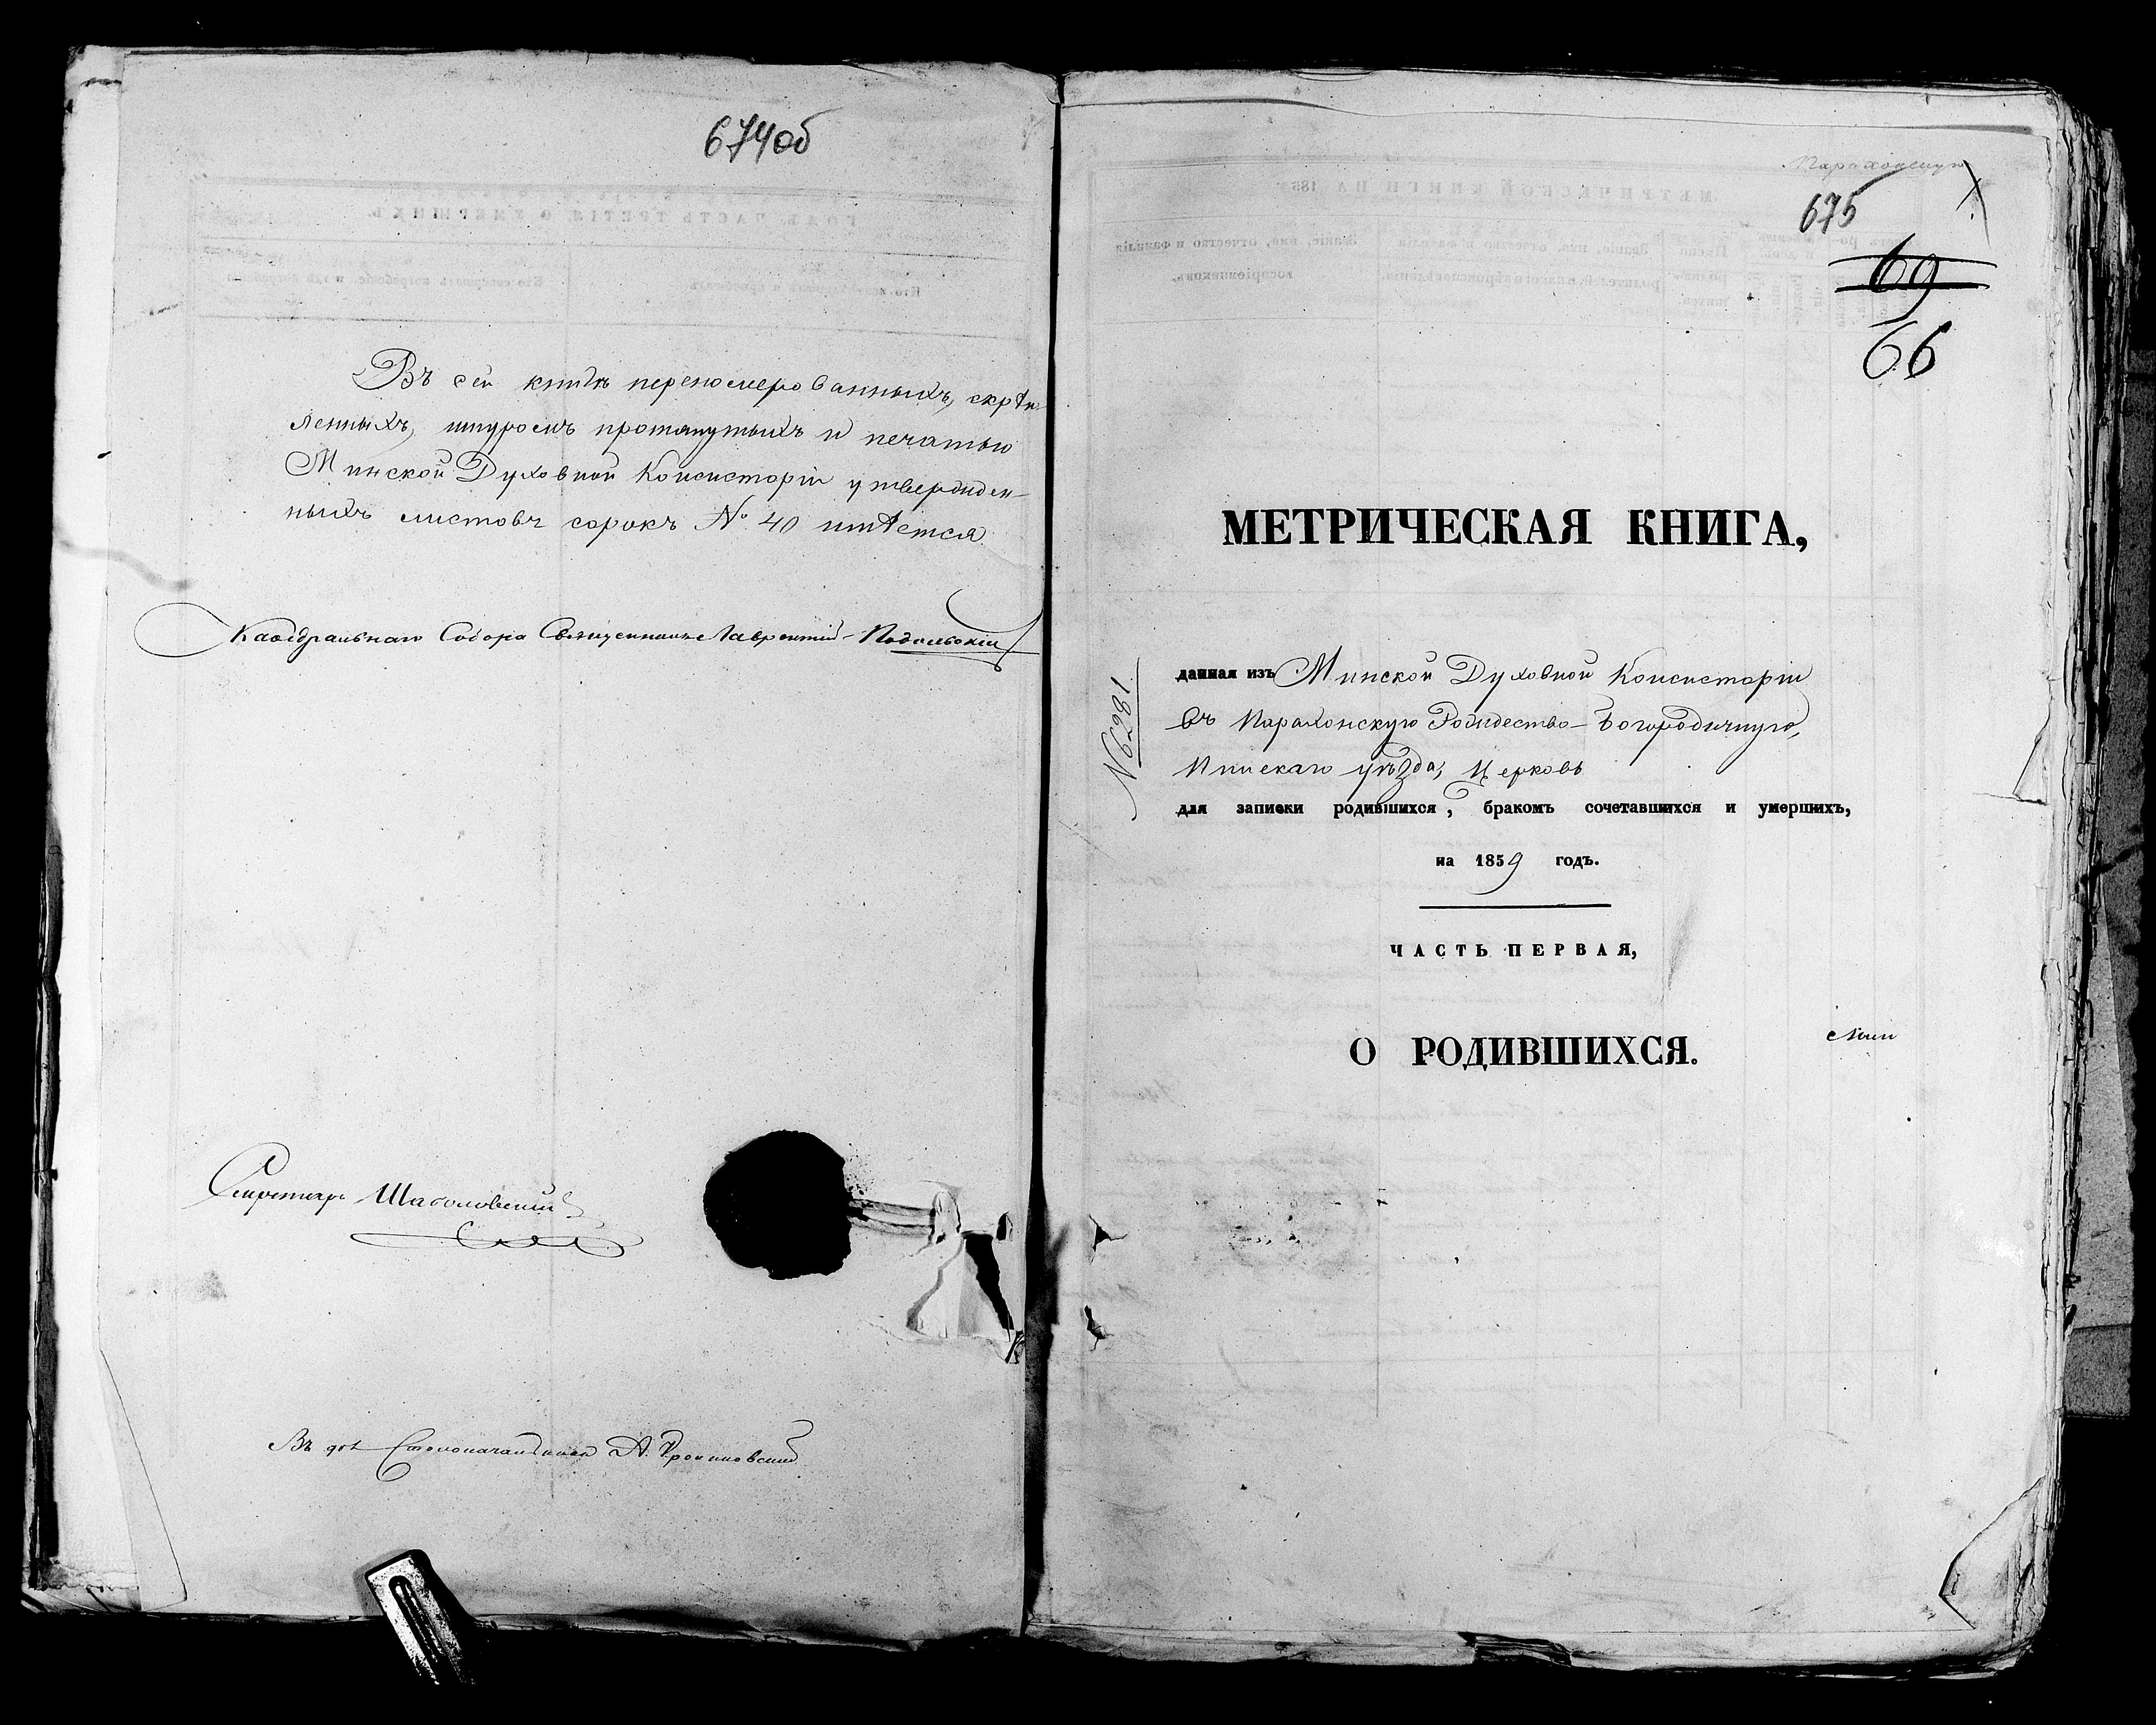 674об
Въ сей книгѣ переномерованныхъ, скрѣп-
ленныхъ, шнуромъ протянутыхъ и печатью
Минской Духовной Консисторіи утвержден-
ныхъ листовъ сорокъ № 40 имѣется.
Каѳедральнаго Собора Священникъ Лаврентій Подольскій
Секретарь Шаболовскій
Въ дол. Столоначальника А.
675
69
66
МЕТРИЧЕСКАЯ КНИГА,
№ 6281.
данная изъ Минской Духовной Консисторіи
въ Парахонскую Рождество-Богородичную,
Пинскаго уѣзда, Церковь
для записки родившихся, бракомъ сочетавшихся и умершихъ,
на 1859 годъ.
ЧАСТЬ ПЕРВАЯ,
О РОДИВШИХСЯ.